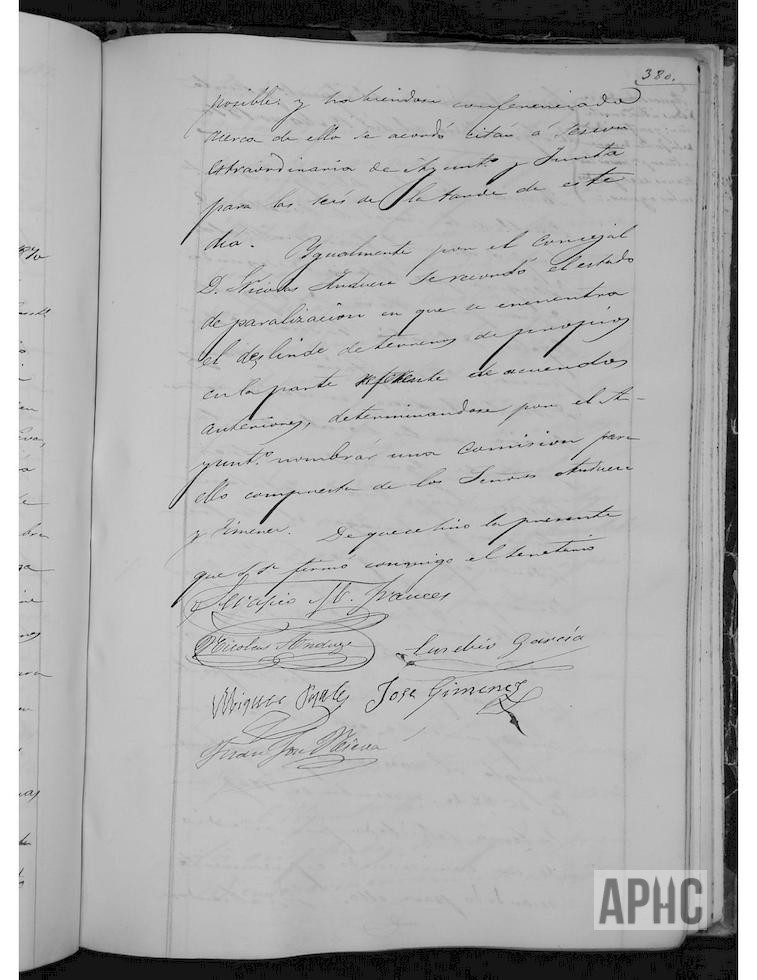 380.
posible; y habiendose conferenciado
acerca de ello se acordó citar á Sesion
Extraordinaria de Ayuntº y Junta
para las seis de la tarde de este
dia. Ygualmente por el Concejal
D. Nicolas Anduze se recordó el estado
de paralizacion en que se encuentra
el deslinde de terrenos de propios
en la parte referente de acuerdos
anteriores, determinandose por el A-
yuntº nombrar una Comision para
ello compuesta de los Señores Anduze
y Gimenez. De que se hizo la presente
que S. Sª firmó conmigo el Secretario
Frances
Nicolas Anduze Eusebio Garcia
Miguel Jose Gimenez
Juan Jose
APHC